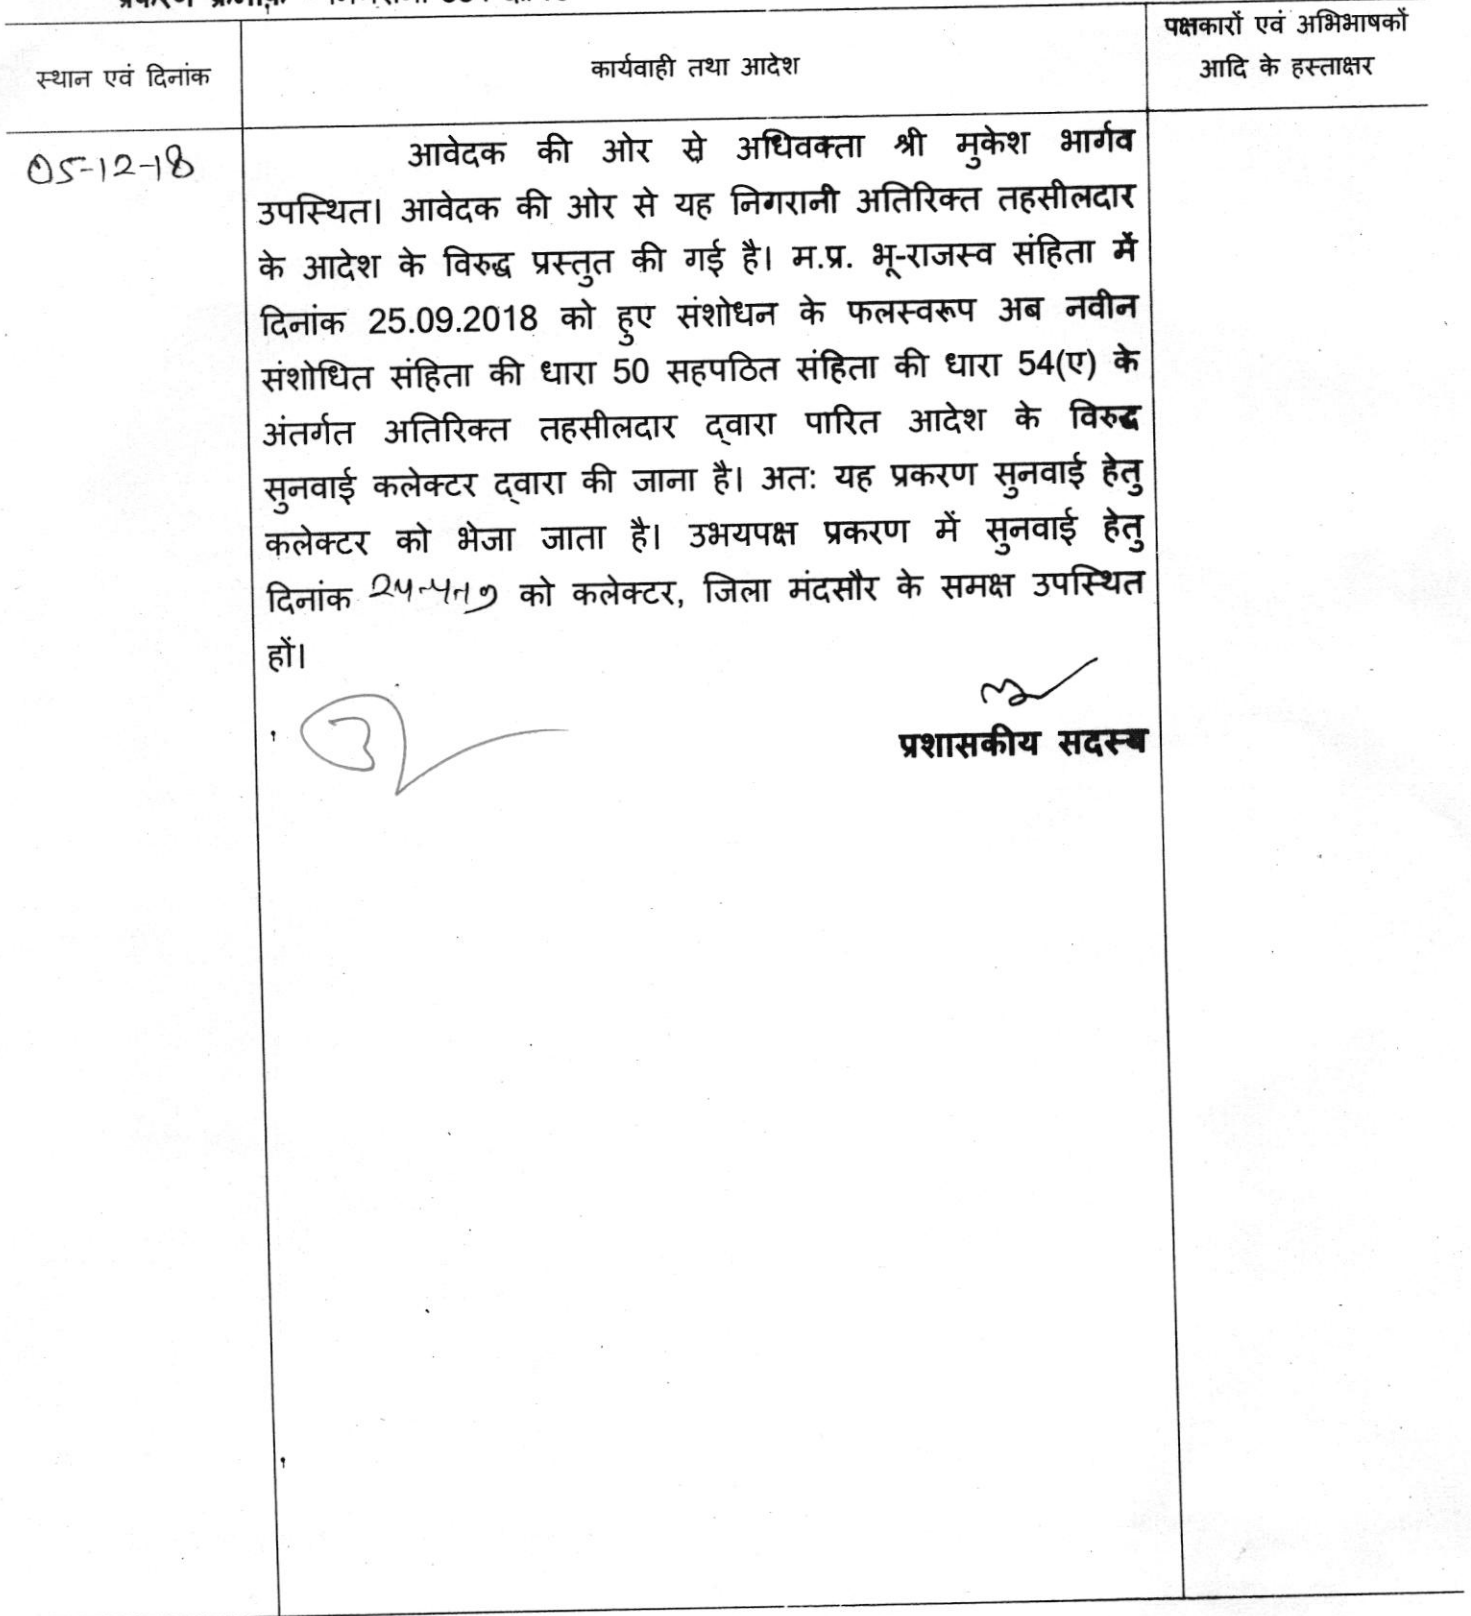 पक्षकारों एवं अभिभाषकों
स्थान एवं दिनांक
कार्यवाही तथा आदेश
आदि के हस्ताक्षर
05-12-18
आवेदक की ओर से अधिवक्ता श्री मुकेश भार्गव
उपस्थित। आवेदक की ओर से यह निगरानी अतिरिक्त तहसीलदार
के आदेश के विरुद्ध प्रस्तुत की गई है। म.प्र. भू-राजस्व संहिता में
दिनांक 25.09.2018 को हुए संशोधन के फलस्वरूप अब नवीन
संशोधित संहिता की धारा 50 सहपठित संहिता की धारा 54(ए) के
अंतर्गत अतिरिक्त तहसीलदार द्वारा पारित आदेश के विरुद्ध
सुनवाई कलेक्टर द्वारा की जाना है। अतः यह प्रकरण सुनवाई हेतु
कलेक्टर को भेजा जाता है। उभयपक्ष प्रकरण में सुनवाई हेतु
दिनांक को कलेक्टर, जिला मंदसौर के समक्ष उपस्थित
हों।
प्रशासकीय सदस्य